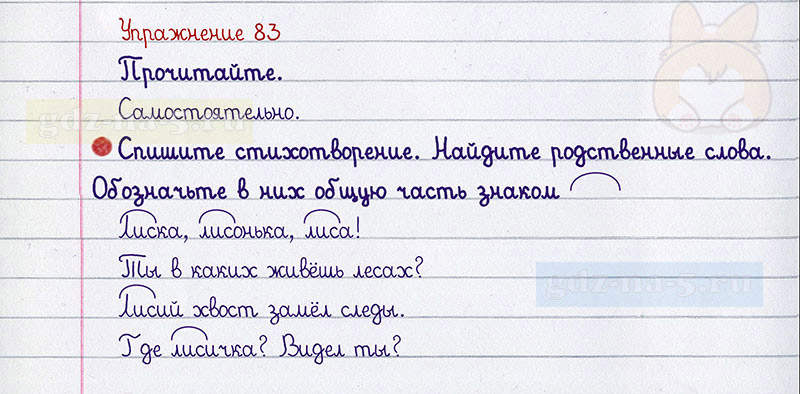 Упражнение 83
Прочитайте.
Самостоятельно.
gdz-na-5.ru
Спишите стихотворение. Найдите родственные слова.
Обозначьте в них общую часть знаком
Лиска, лисонька, лиса!
Ты в каких живёшь лесах?
gdz-na-5.ru
Лисий хвост замёл следы.
Где лисичка? Видел ты?